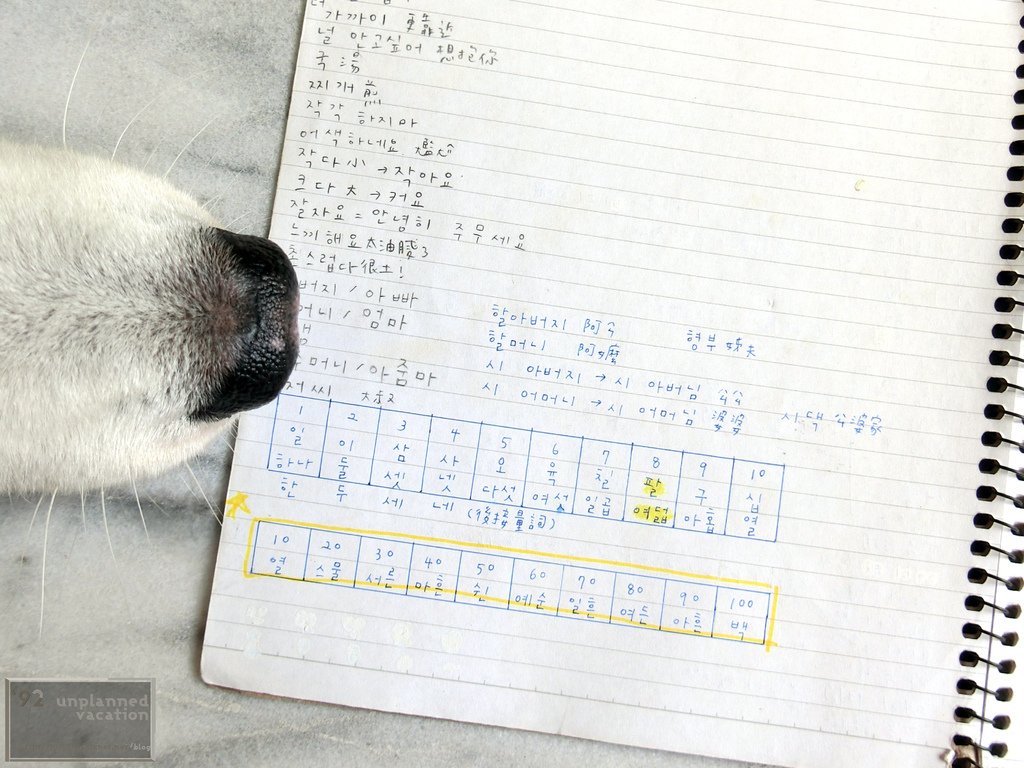 가까이 靠近
널 안고싶어 想抱你
국 湯
찌개 煎
작각 하지마
어색하네요 尷尬
작다 小 → 작아요
크다 大 → 커요
잘자요 = 안녕히 주무세요
느끼해요 太油膩了
촌스럽다 很土!
버지 / 아빠
머니 / 엄마
머니 / 아줌마
저씨 大叔
할아버지 阿公 형부 姊夫
할머니 阿嬤
시 아버지 → 시 아버님 公公
시 어머니 → 시 어머님 婆婆 시댁 公婆家
1 2 3 4 5 6 7 8 9 10
일 이 삼 사 오 육 칠 팔 구 십
하나 둘 셋 넷 다섯 여섯 일곱 여덟 아홉 열
한 두 세 네 (後接量詞)
10 20 30 40 50 60 70 80 90 100
열 스물 서른 마흔 쉰 예순 일흔 여든 아흔 백
92 unplanned
vacation
/blog